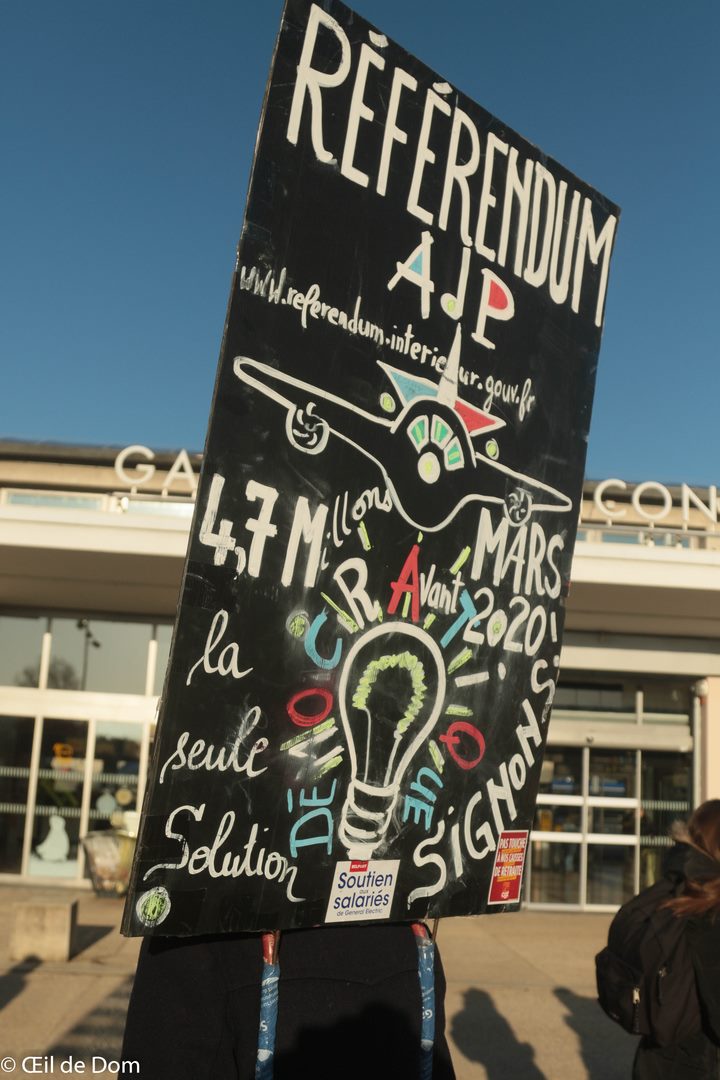 RÉFÉRENDUM
AdP
www.referendum.interieur.gouv.fr
4,7 Millons
Avant
MARS
2020!
DÉMOCRATIQUE
la
seule
Solution
SiGNONS!
BELFORT
Soutien
aux
salariés
de General Electric
PAS TOUCHE
À NOS CAISSES
DE RETRAITE
GA
CON
© Œil de Dom